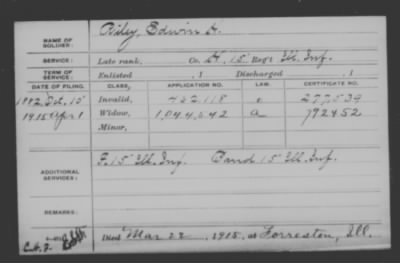 NAME OF SOLDIER: Biley, Edwin A.
SERVICE: Late rank, Co. H, 15 Reg't Ill. Inf.
TERM OF SERVICE: Enlisted , 1 Discharged , 1
DATE OF FILING. CLASS. APPLICATION NO. LAW. CERTIFICATE NO.
Oct. 15 Invalid, 277539
1915 Apr 1 Widow, 1,044,042 a 792452
Minor,
ADDITIONAL SERVICES: F. 15 Ill. Inf. Band 15 Ill. Inf.
REMARKS:
Died Mar 22, 1915, at Forreston, Ill.